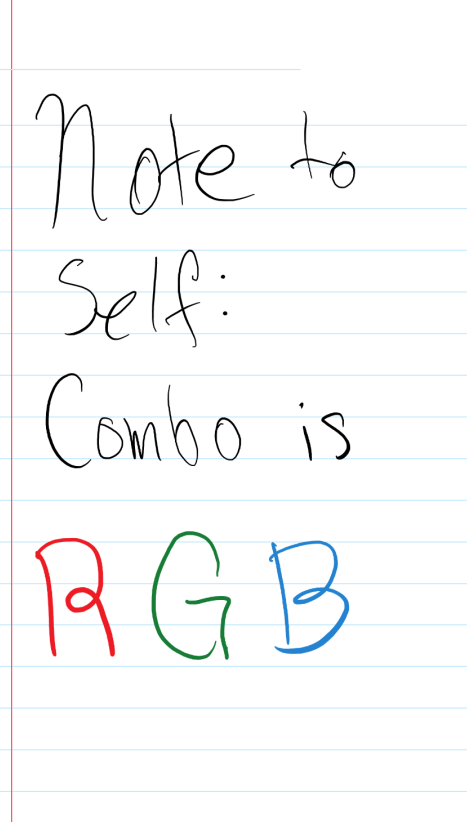 Note to
Self:
Combo is
R G B